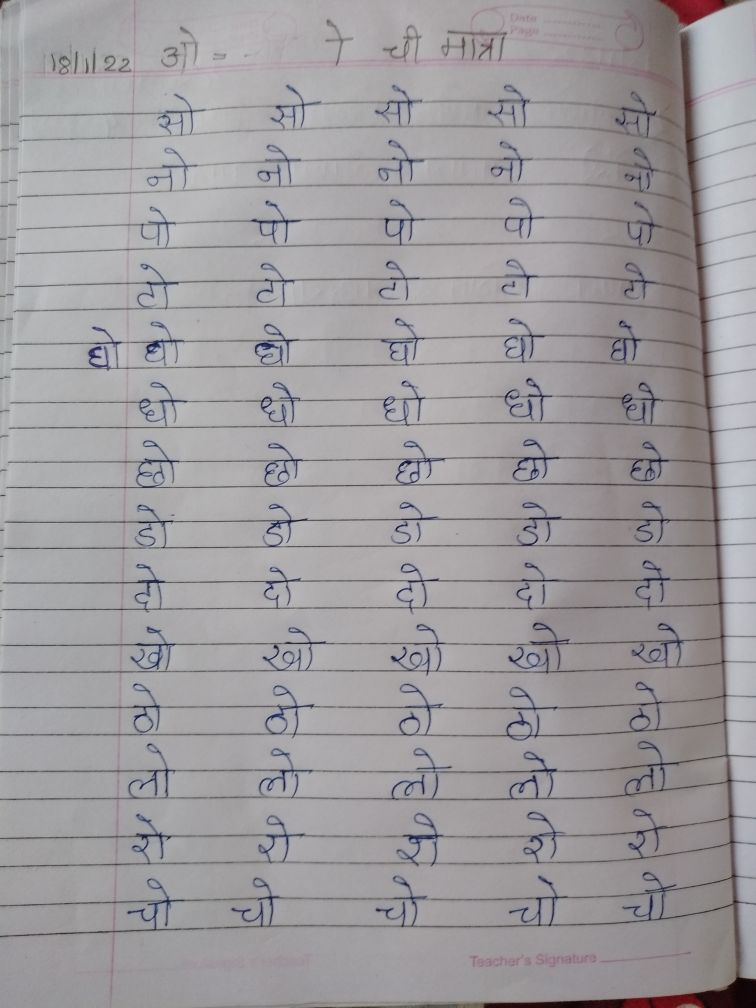 Date
Page
18/1/22 ओ = - ो ची मात्रा
सो सो सो सो सो
नो नो नो नो नो
पो पो पो पो पो
टो टो टो टो टो
घो घो घो घो घो घो
धो धो धो धो धो
छो छो छो छो छो
डो डो डो डो डो
दो दो दो दो दो
खो खो खो खो खो
ठो ठो ठो ठो ठो
लो लो लो लो लो
शे शे शे शे शे
चो चो चो चो चो
Teacher's Signature